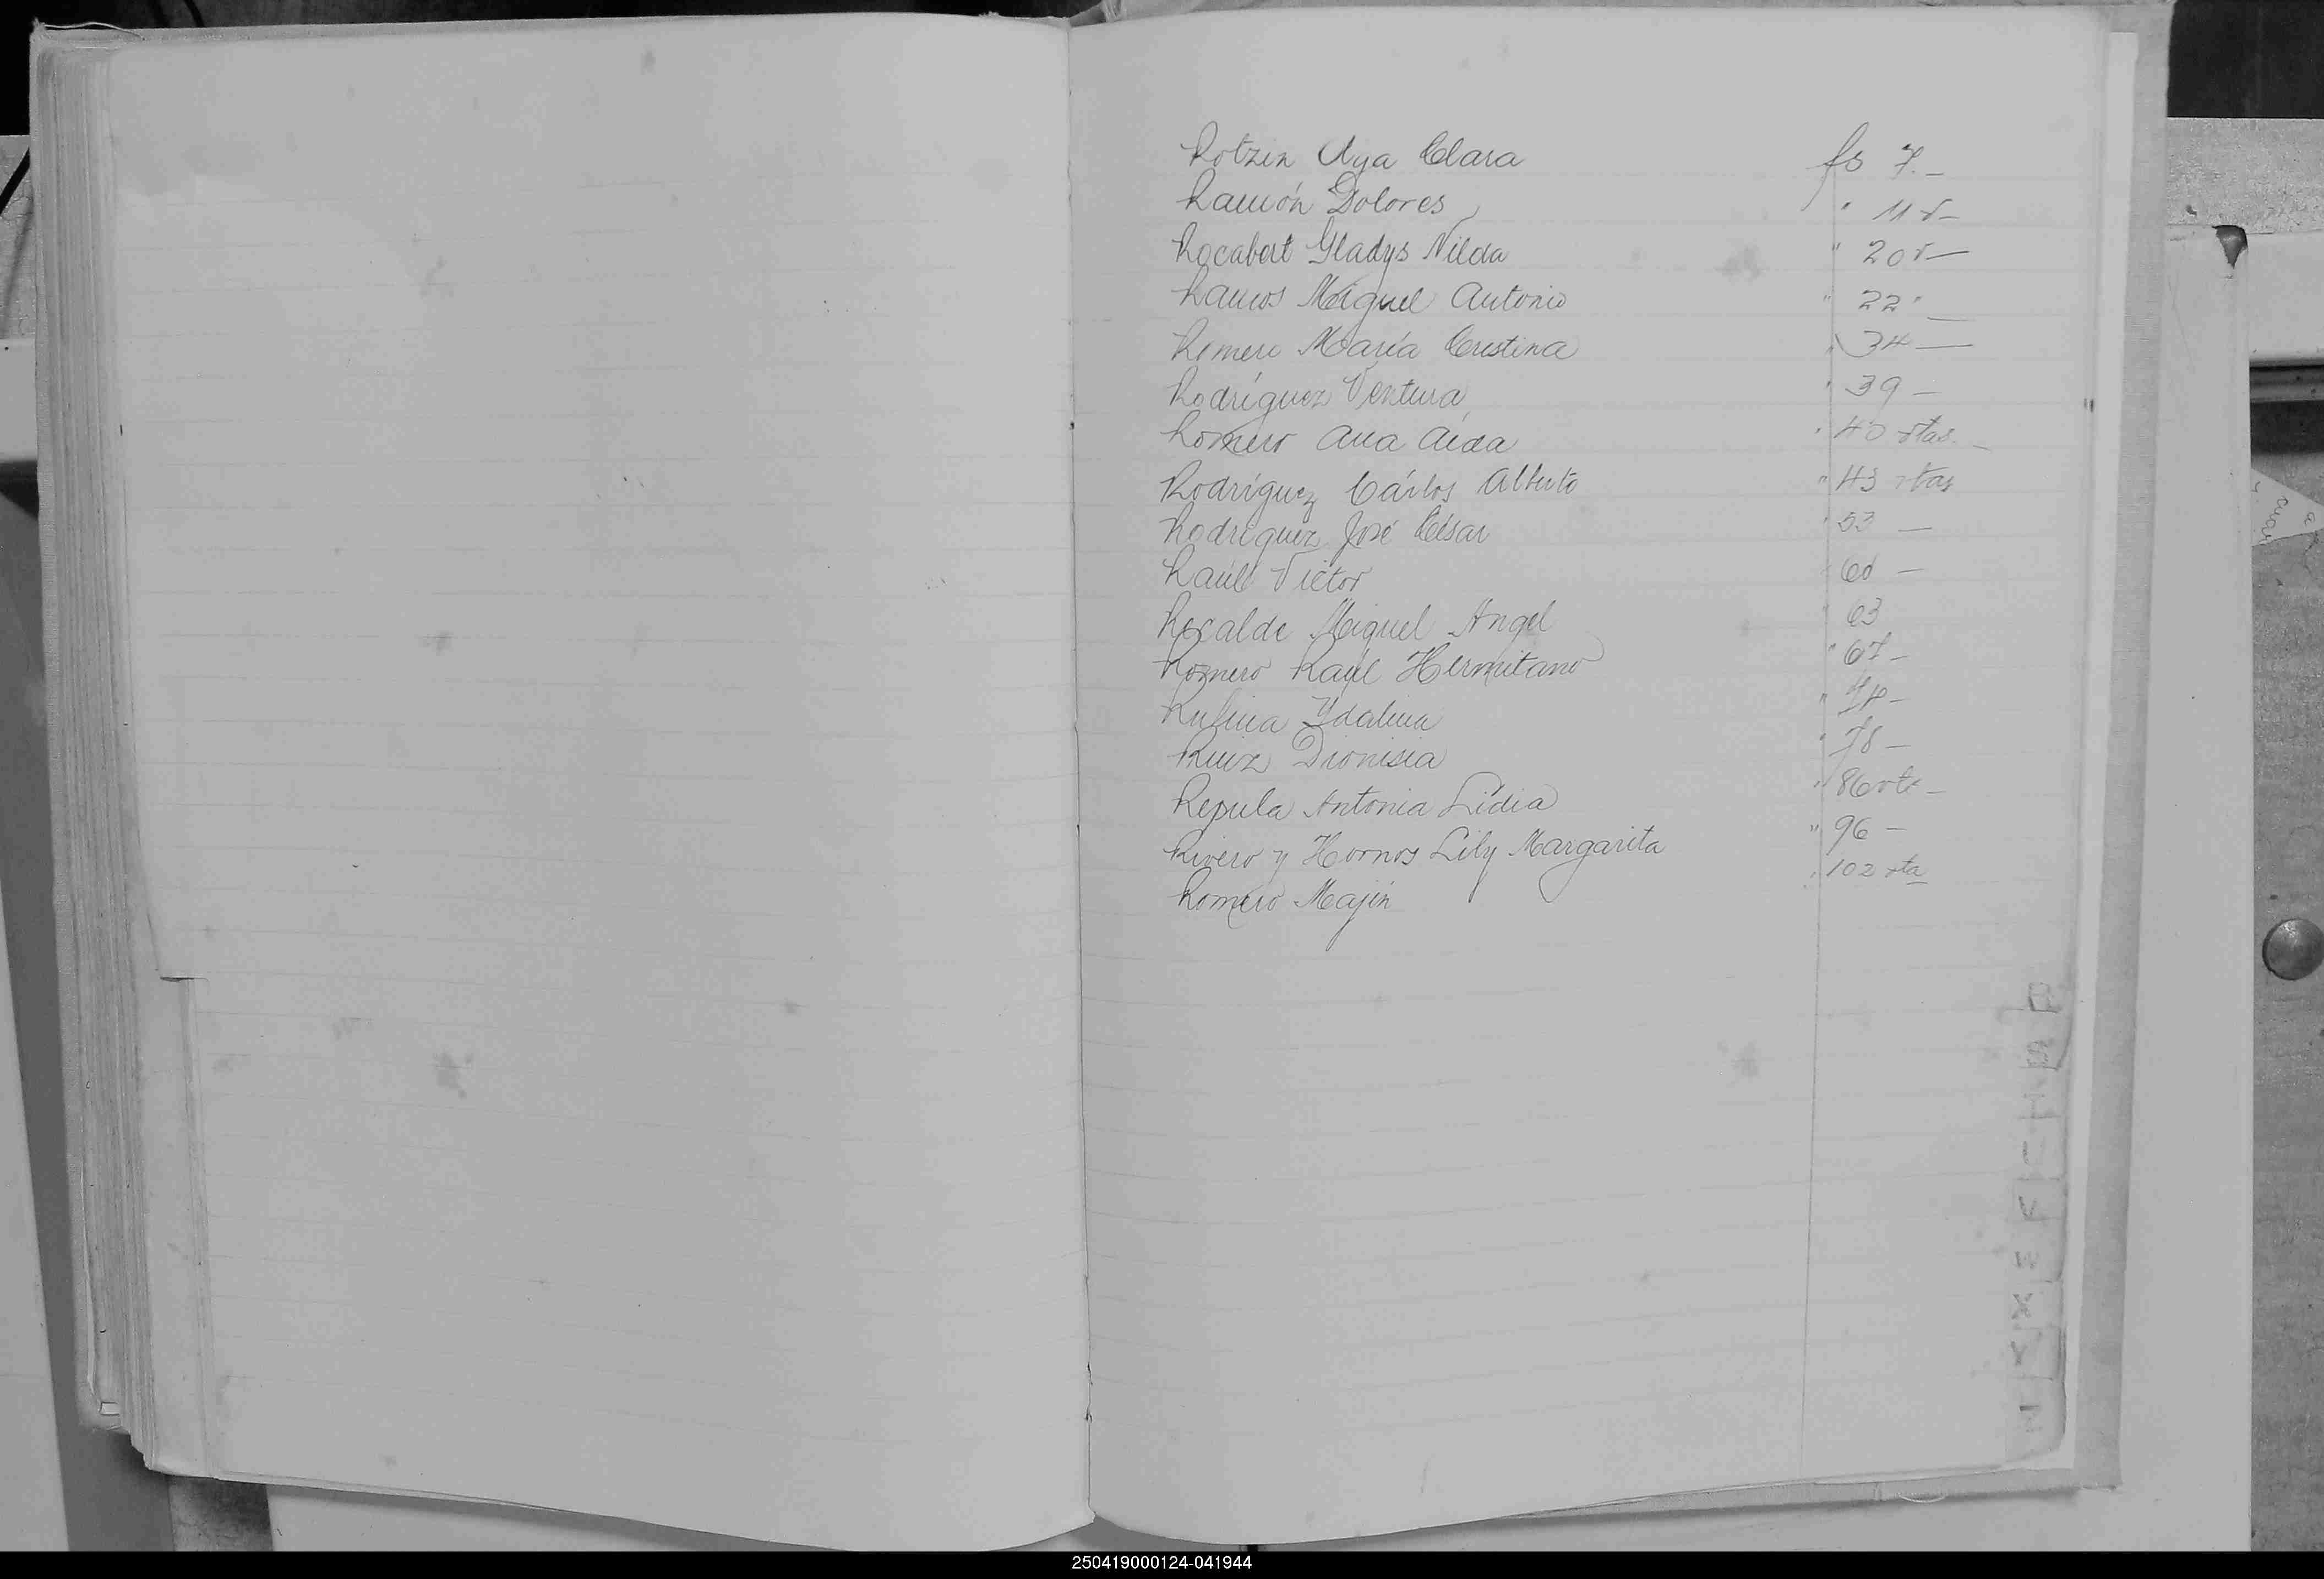 Rotzen Uga Clara fs 7.-
Ramón Dolores " 11 v-
Rocabert Gladys Nilda " 20 v-
Ramos Miguel Antonio " 22 " -
Romero María Cristina " 34 -
Rodríguez Ventura " 39 -
Romero Ana Aída " 40 vtas. -
Rodríguez Cárlos Alberto " 43 vtas
Rodríguez José César " 53 -
Raúl Víctor " 60 -
Recalde Miguel Angel " 63
Romero Raúl Hermitano " 67 -
Rufina Ydalina " 74 -
Ruiz Dionisia " 78 -
Repula Antonia Lidia " 86 vta -
Rivero y Hornos Lily Margarita " 96 -
Romero Majín " 102 vta
250419000124-041944